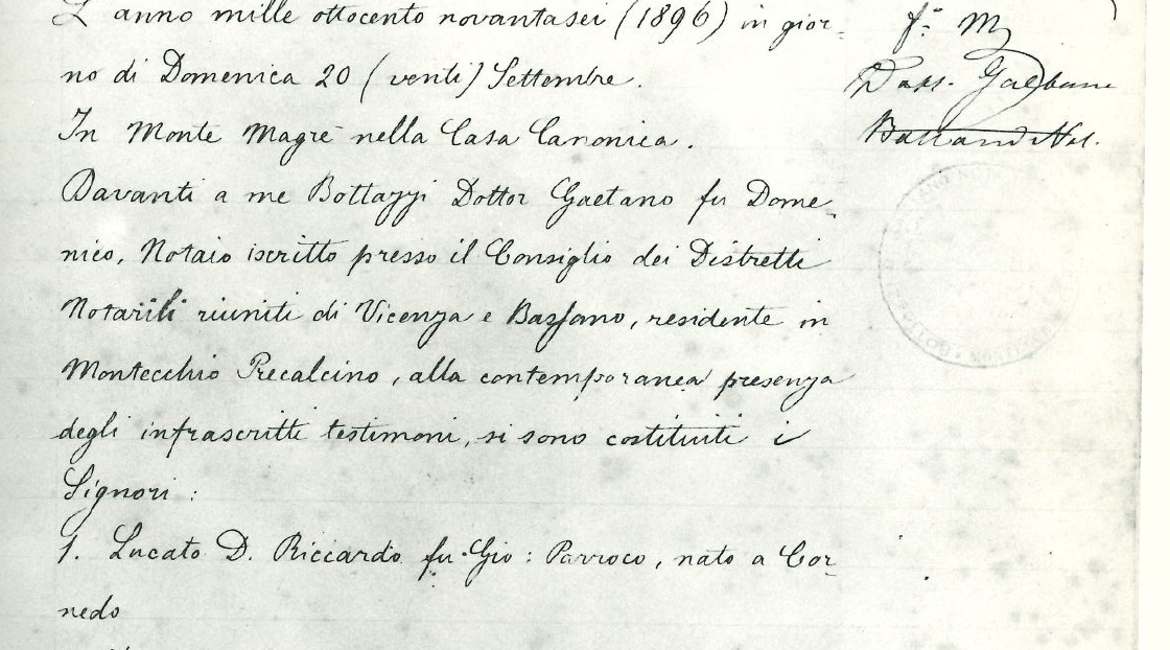 L'anno mille ottocento novantasei (1896) in gior-
no di Domenica 20 (venti) Settembre.
In Monte Magrè nella Casa Canonica.
Davanti a me Bottazzi Dottor Gaetano fu Dome-
nico, Notaio iscritto presso il Consiglio dei Distretti
Notarili riuniti di Vicenza e Bassano, residente in
Montecchio Precalcino, alla contemporanea presenza
degli infrascritti testimoni, si sono costituiti i
Signori:
1. Lucato D. Riccardo fu Gio: Parroco, nato a Cor-
nedo